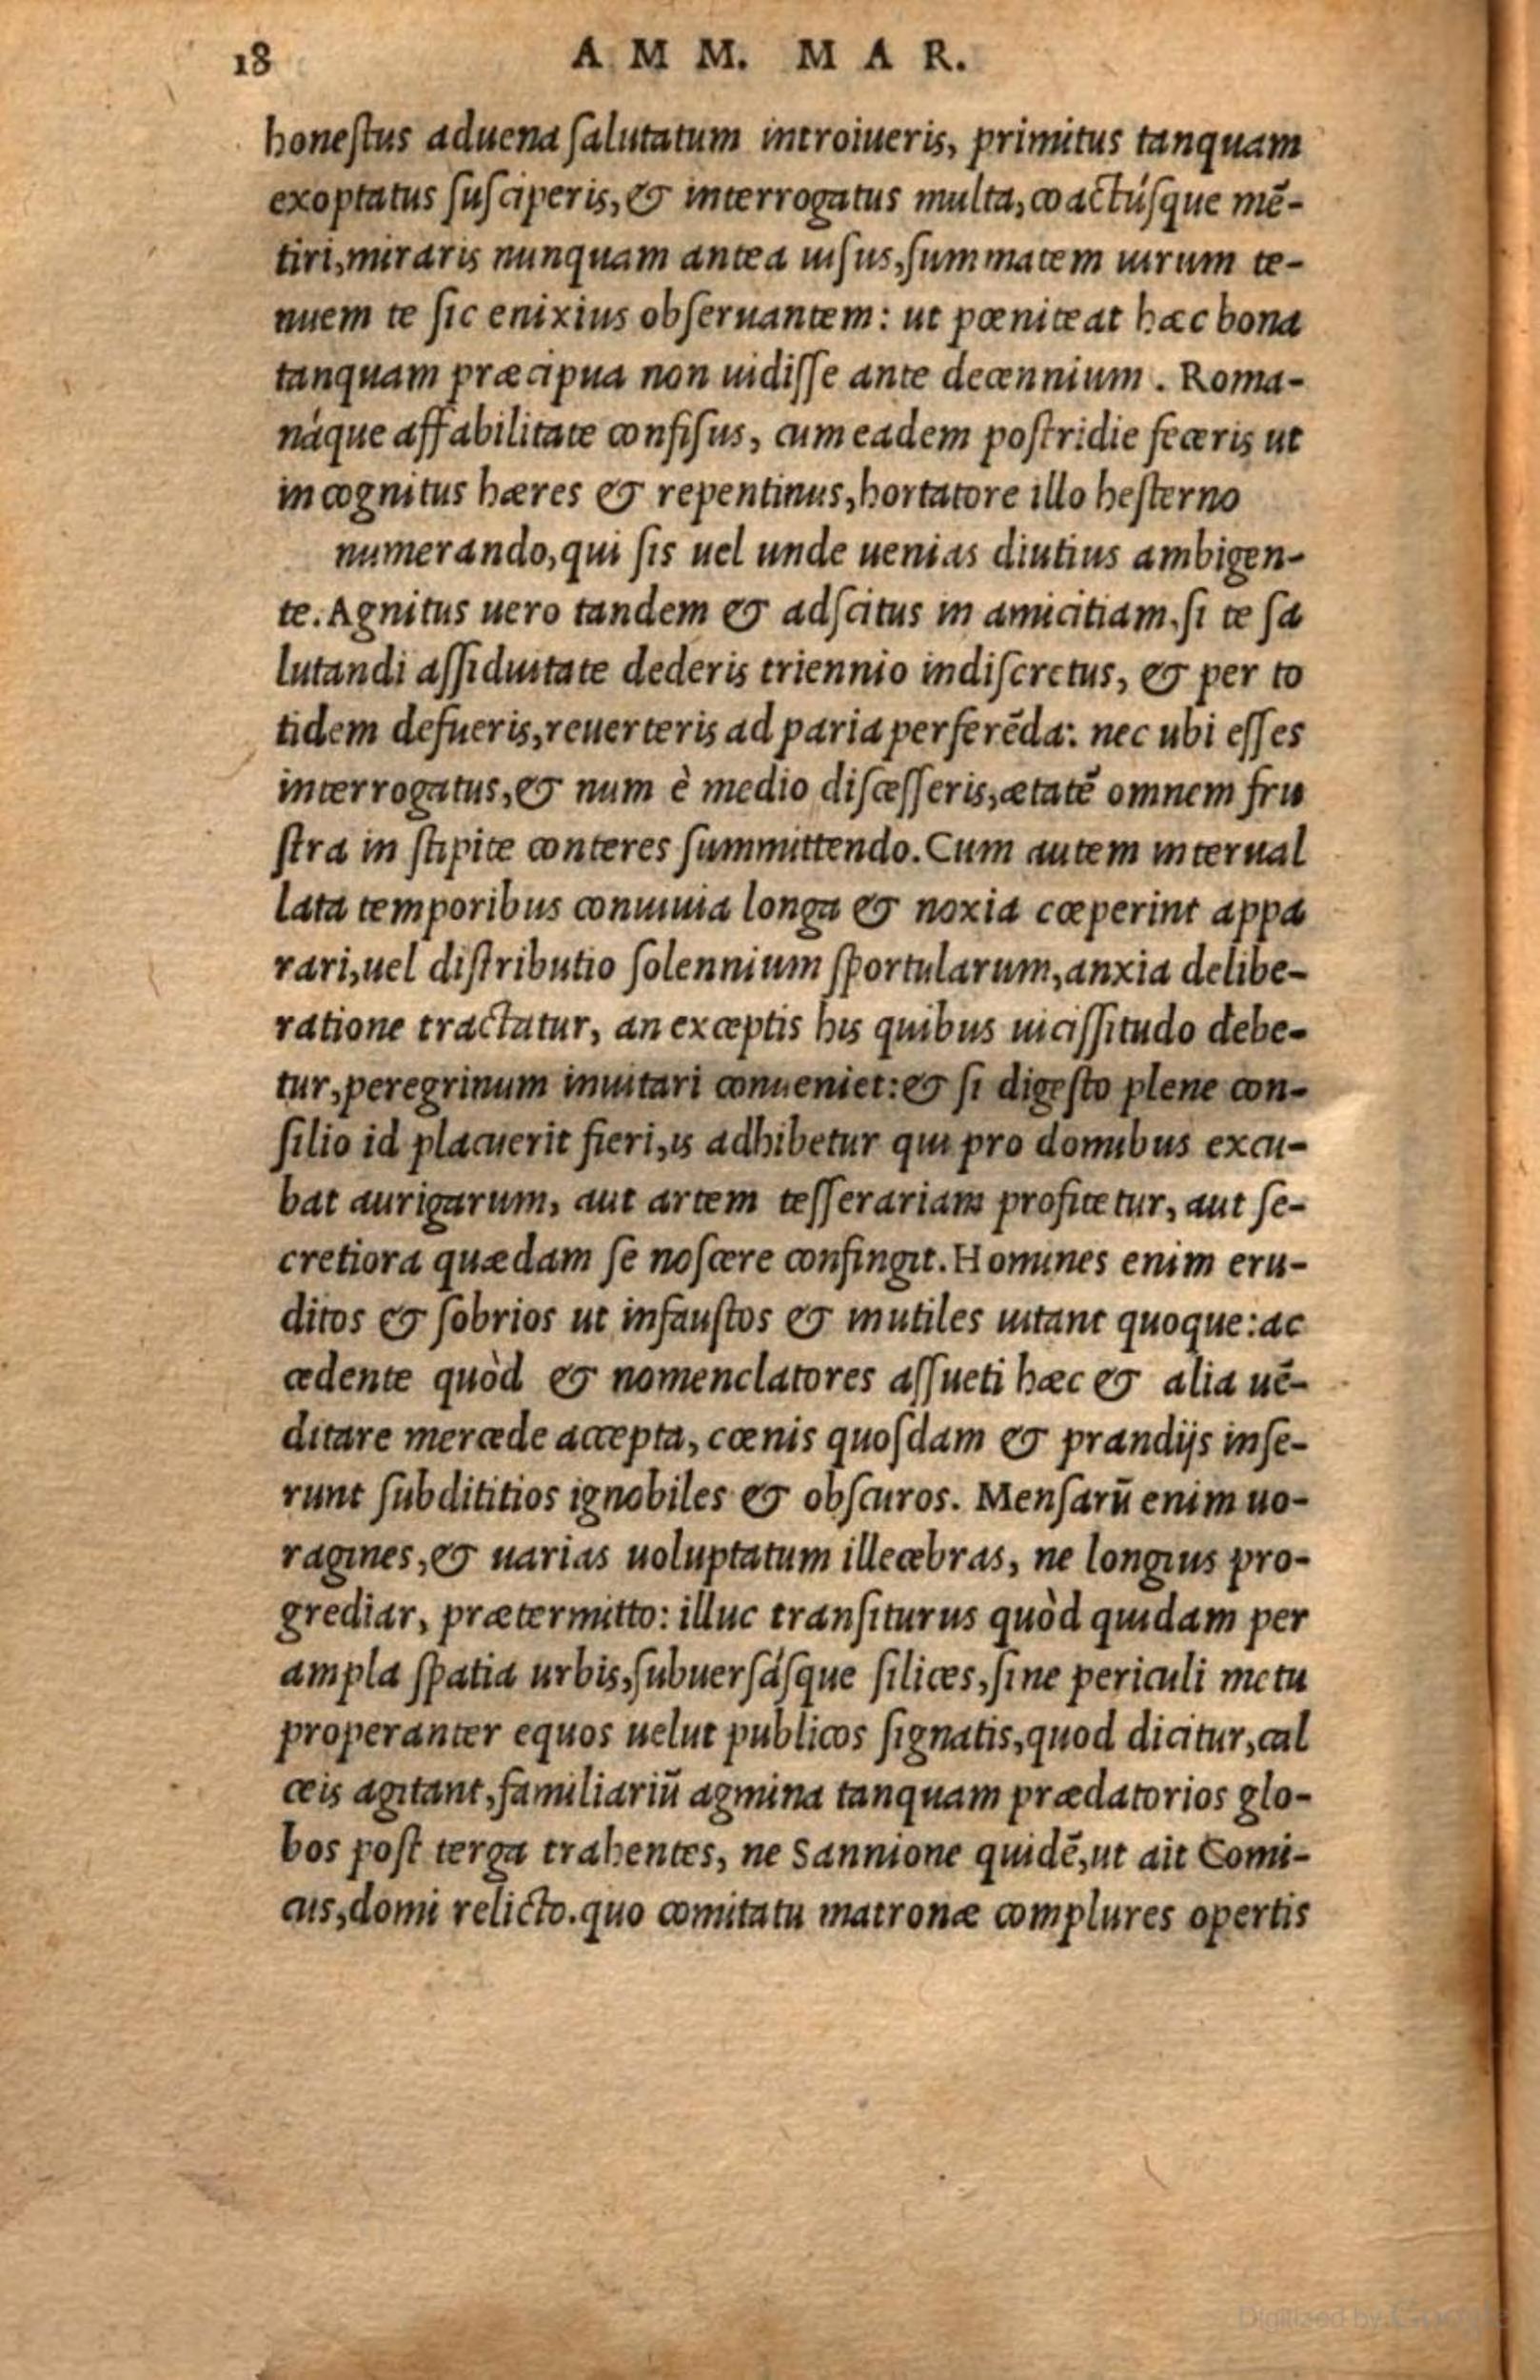 18 AMM. MAR.
honeſtus aduena ſalutatum introiueris, primitus tanquam
exoptatus ſuſciperis, & interrogatus multa, coactúſque mē-
tiri, miraris nunquam antea uiſus, ſummatem uirum te-
nuem te ſic enixius obſeruantem: ut pœniteat hæc bona
tanquam præcipua non uidiſſe ante decennium. Roma-
náque affabilitate confiſus, cum eadem poſtridie feceris ut
incognitus hæres & repentinus, hortatore illo heſterno
numerando, qui ſis uel unde uenias diutius ambigen-
te. Agnitus uero tandem & adſcitus in amicitiam, ſi te ſa
lutandi aſſiduitate dederis triennio indiſcretus, & per to
tidem defueris, reuerteris ad paria perferēda: nec ubi eſſes
interrogatus, & num è medio diſceſſeris, ætatē omnem fru
ſtra in ſtipite conteres ſummittendo. Cum autem interual
lata temporibus conuiuia longa & noxia cœperint appa
rari, uel diſtributio ſolennium ſportularum, anxia delibe-
ratione tractatur, an exceptis his quibus uiciſſitudo debe-
tur, peregrinum inuitari conueniet: & ſi digeſto plene con-
ſilio id placuerit fieri, is adhibetur qui pro domibus excu-
bat aurigarum, aut artem teſſerariam profitetur, aut ſe-
cretiora quædam ſe noſcere confingit. Homines enim eru-
ditos & ſobrios ut infauſtos & inutiles uitant quoque: ac
cedente quòd & nomenclatores aſſueti hæc & alia uē-
ditare mercede accepta, cœnis quoſdam & prandijs inſe-
runt ſubdititios ignobiles & obſcuros. Menſarū enim uo-
ragines, & uarias uoluptatum illecebras, ne longius pro-
grediar, prætermitto: illuc tranſiturus quòd quidam per
ampla ſpatia urbis, ſubuerſáſque ſilices, ſine periculi metu
properanter equos uelut publicos ſignatis, quod dicitur, cal
ceis agitant, familiariū agmina tanquam prædatorios glo-
bos poſt terga trahentes, ne Sannione quidē, ut ait Comi-
cus, domi relicto. quo comitatu matronæ complures opertis
Digitized by Google